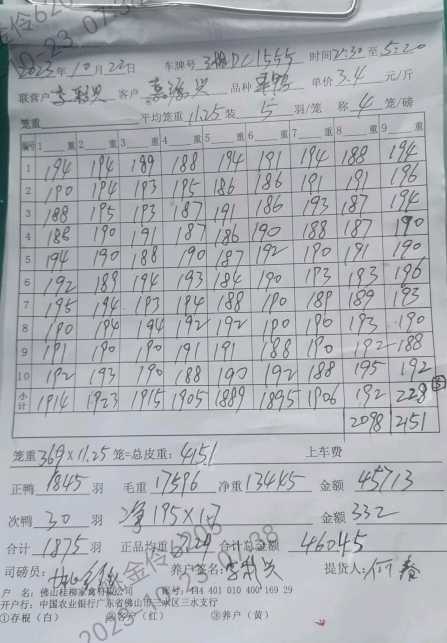 2023年10月22日 车牌号 DC1555 时间2:30至5:20
联营户 客户 品种 单价3.4元/斤
笼重 平均笼重11.25装5羽/笼 称4笼/磅
编号 1 重 2 重 3 重 4 重 5 重 6 重 7 重 8 重 9 重
1 194 194 189 188 194 191 194 188 194
2 190 194 193 195 186 186 191 191 196
3 188 195 193 187 191 186 193 187 194
4 188 190 191 187 186 190 188 187 190
5 194 190 188 190 187 192 190 191 190
6 192 189 194 193 184 190 193 193 196
7 195 194 193 194 188 190 189 189 193
8 190 194 194 192 192 190 190 193 190
9 191 190 190 191 191 188 190 192 188
10 192 193 190 188 190 192 188 195 192
小计 1914 1923 1915 1905 1889 1895 1906 192 228
2098 2151
笼重369×11.25笼=总皮重:4151 上车费
正鸭1845羽 毛重17596 净重13445 金额45713
次鸭30羽 净195×1.7 金额332
合计1875羽 正品均重 合计总金额46045
司磅员: 养户签名: 提货人:
户 名:佛山桂柳家禽有限公司 账号:444 401 010 400 169 29
开户行:中国农业银行广东省佛山市三水区三水支行
①存根(白) ②客户(红) ③养户(黄)